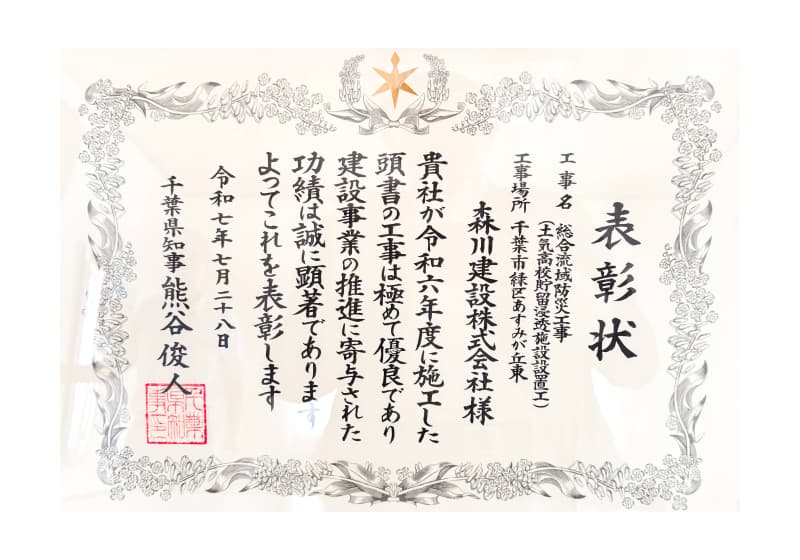 表彰状
工事名 総合流域防災工事
(土気高校貯留浸透施設設置工)
工事場所 千葉市緑区あすみが丘東
森川建設株式会社 様
貴社が令和六年度に施工した
頭書の工事は極めて優良であり
建設事業の推進に寄与された
功績は誠に顕著であります
よってこれを表彰します
令和七年七月二十八日
千葉県知事 熊谷俊人